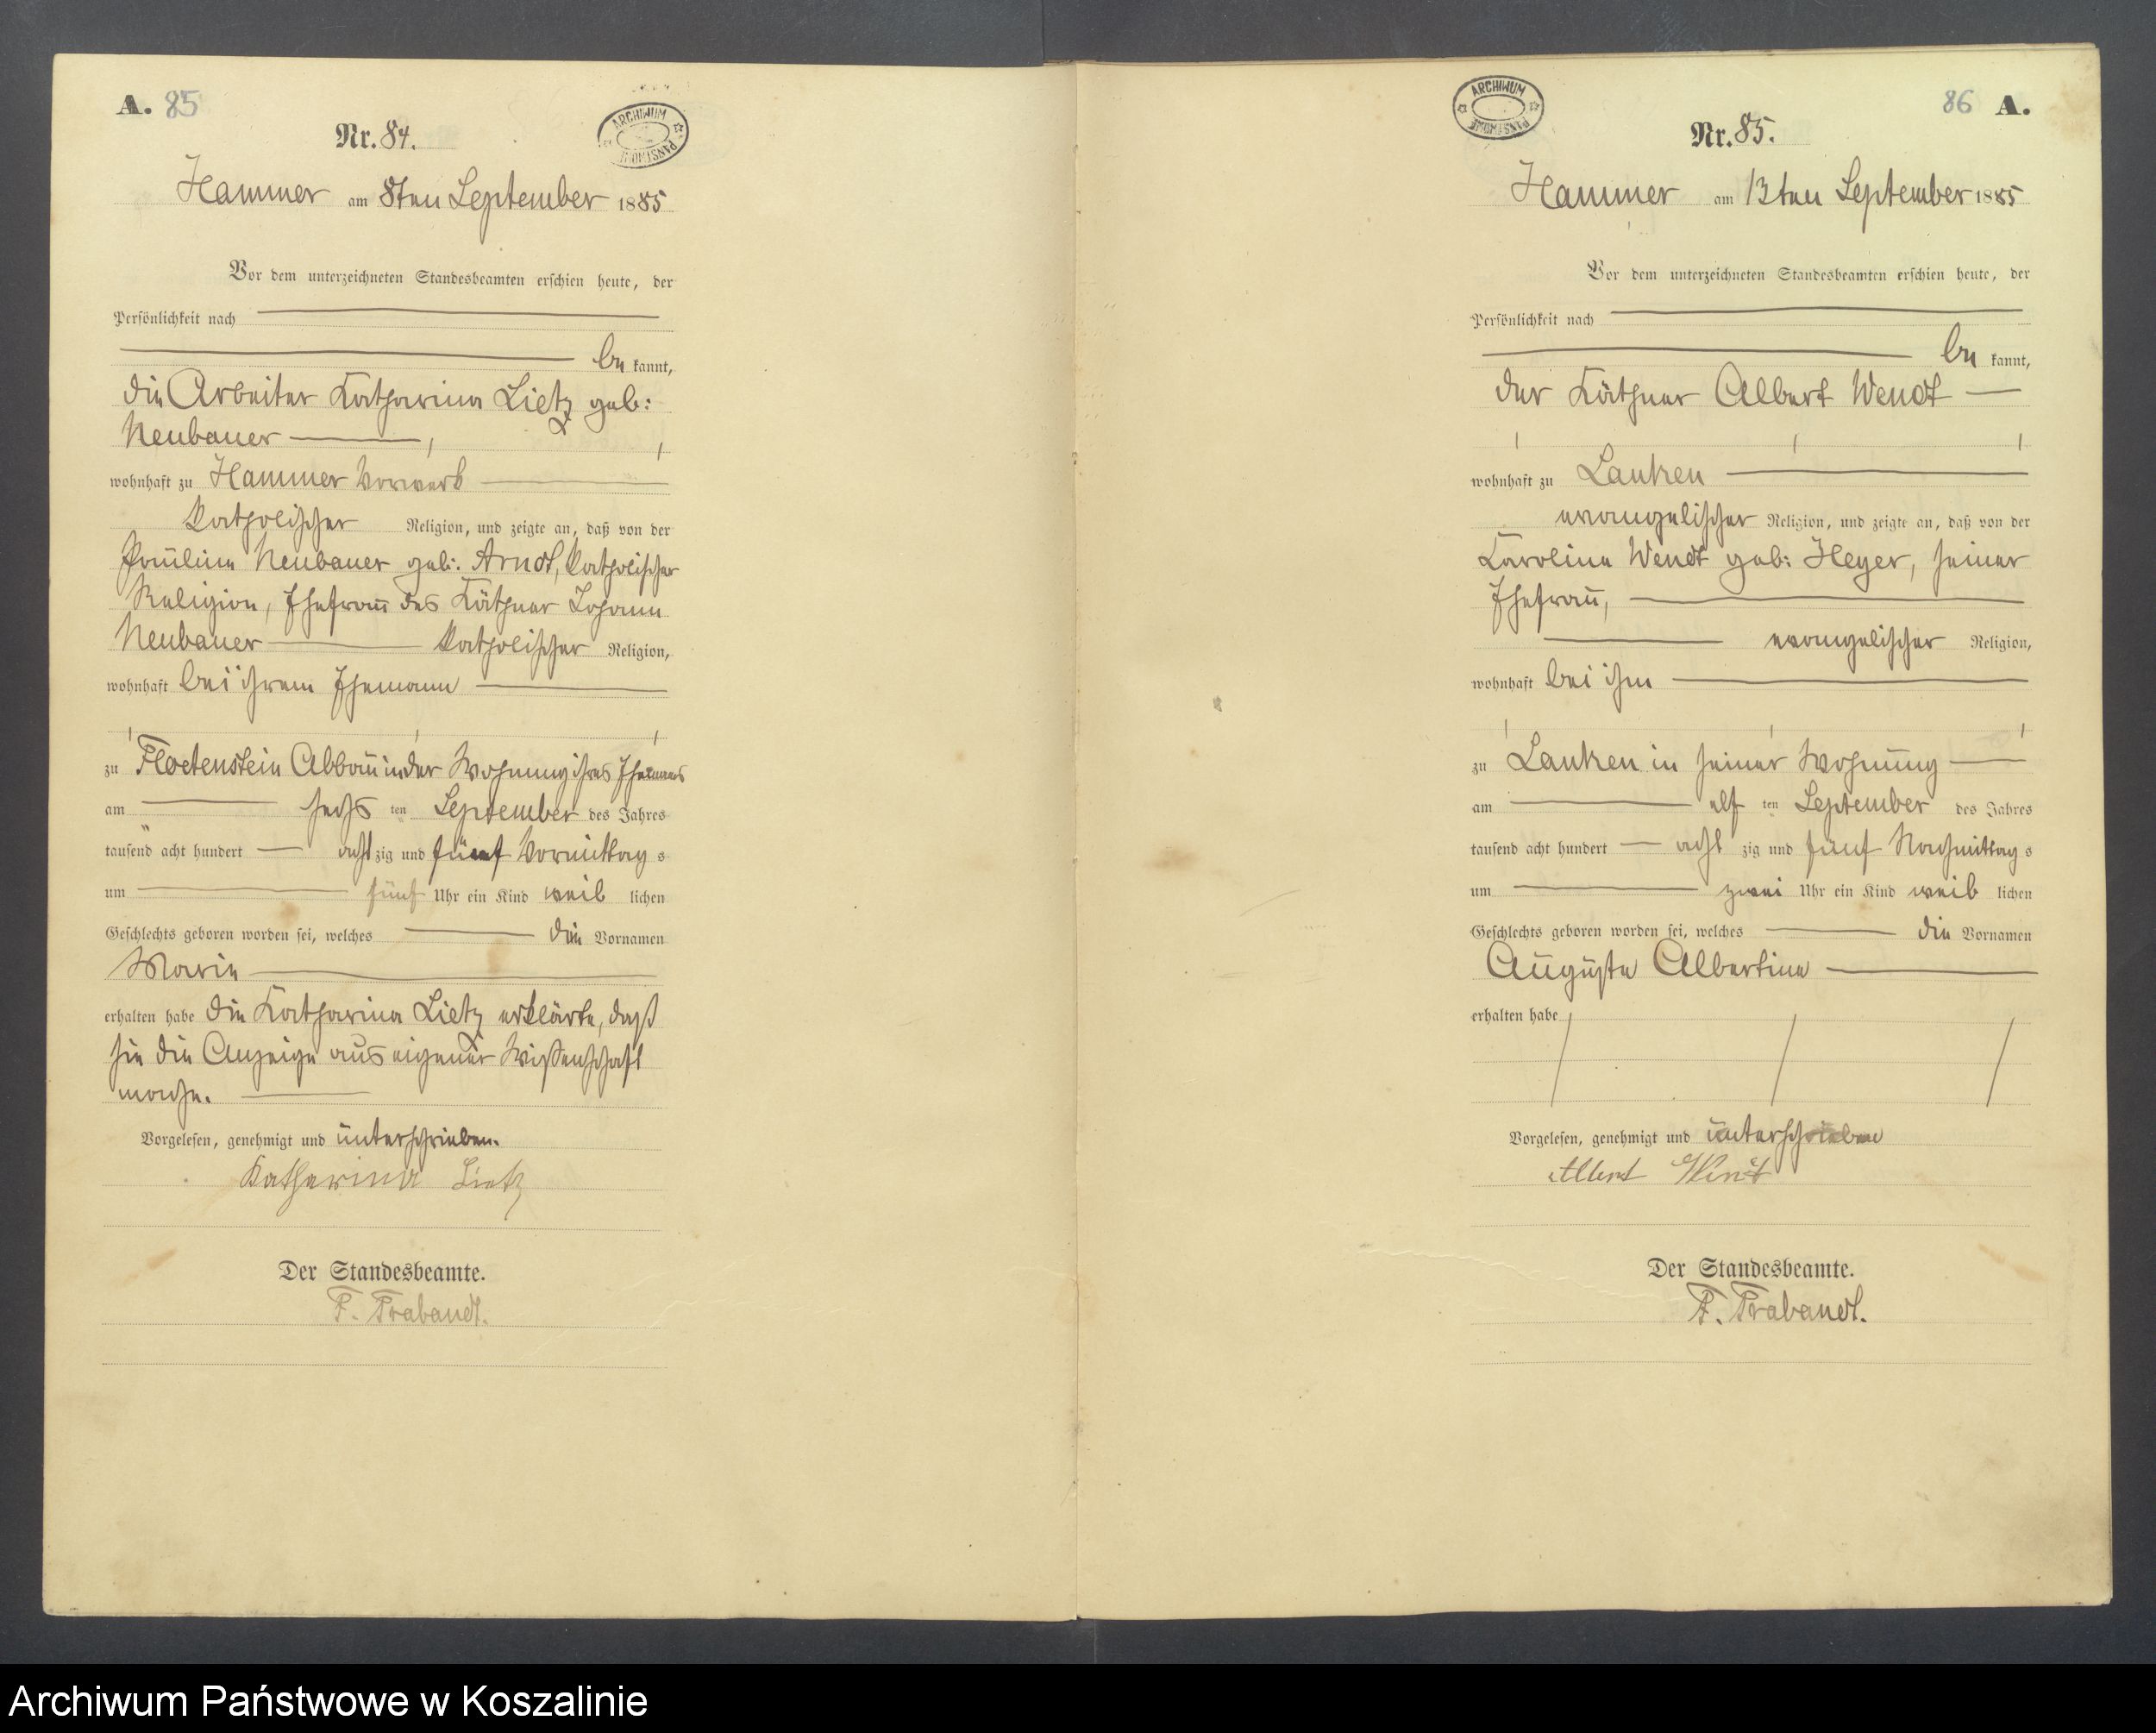 A. 85
Nr. 84.
ARCHIWUM PAŃSTWOWE
Hammer am 8ten September 1885
Vor dem unterzeichneten Standesbeamten erschien heute, der
Persönlichkeit nach
be kannt,
die Arbeiter Katharina Lietz geb:
Neubauer
wohnhaft zu Hammer Vorwerk
katholischer Religion, und zeigte an, daß von der
Pauline Neubauer geb: Arndt, katholischer
Religion, Ehefrau des Käthner Johann
Neubauer katholischer Religion,
wohnhaft bei ihrem Ehemann
zu Floetenstein Abbau in der Wohnung ihres Ehemanns
am sechs ten September des Jahres
tausend acht hundert acht zig und fünf Vormittag s
um fünf Uhr ein Kind weib lichen
Geschlechts geboren worden sei, welches die Vornamen
Marie
erhalten habe die Katharina Lietz erklärte, daß
sie die Anzeige aus eigener Wissenschaft
mache.
Vorgelesen, genehmigt und unterschrieben.
Katharina Lietz
Der Standesbeamte.
F. Trabandt.
86 A.
Nr. 85.
ARCHIWUM PAŃSTWOWE
Hammer am 13ten September 1885
Vor dem unterzeichneten Standesbeamten erschien heute, der
Persönlichkeit nach
be kannt,
der Käthner Albert Wendt
wohnhaft zu Lanken
evangelischer Religion, und zeigte an, daß von der
Karoline Wendt geb: Heyer, seiner
Ehefrau,
evangelischer Religion,
wohnhaft bei ihm
zu Lanken in seiner Wohnung
am elf ten September des Jahres
tausend acht hundert acht zig und fünf Nachmittag s
um zwei Uhr ein Kind weib lichen
Geschlechts geboren worden sei, welches die Vornamen
Auguste Albertine
erhalten habe
Vorgelesen, genehmigt und unterschrieben
Albert Wendt
Der Standesbeamte.
F. Trabandt.
Archiwum Państwowe w Koszalinie